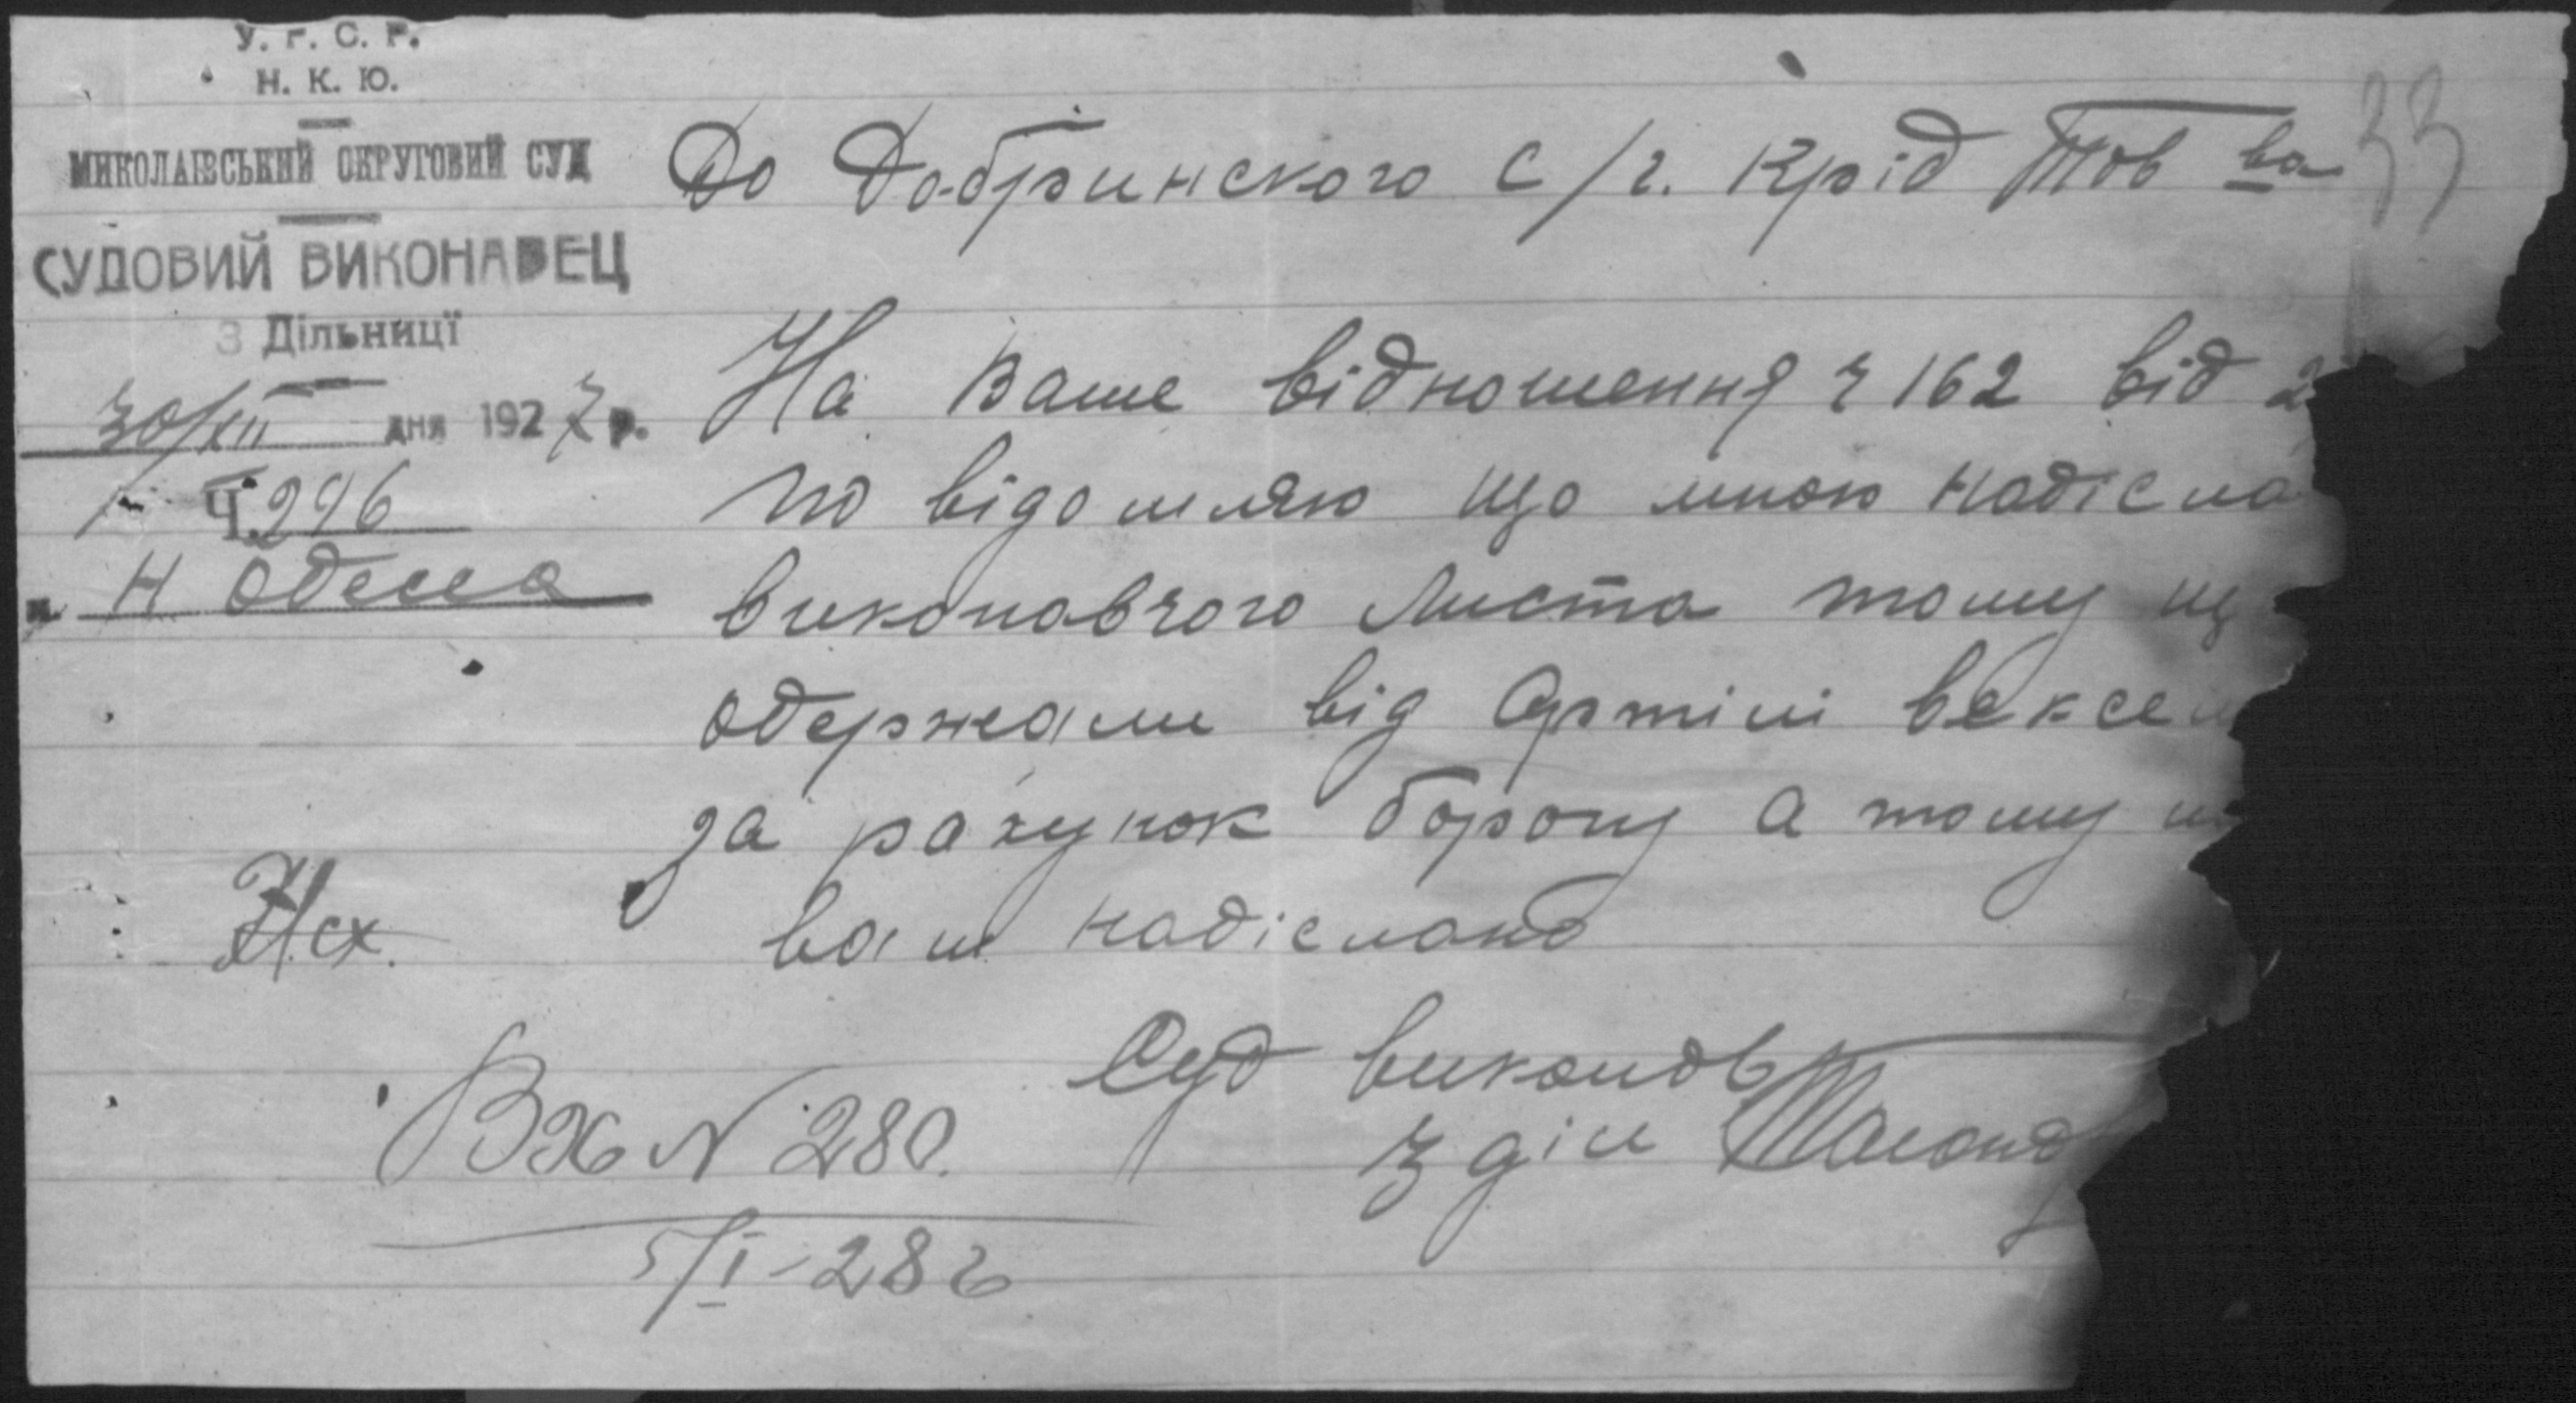 У. С. С. Р.
Н. К. Ю.
МИКОЛАЇВСЬКИЙ ОКРУГОВИЙ СУД
СУДОВИЙ ВИКОНАВЕЦЬ
3 Дільниці
30/XII дня 1927 р.
Ч. 296
Н Одеса
33
До Добринского с/г. Кред Тов ва
На Ваше відношення ч 162 від 2
по відомляю що мною надісла
виконавчого листа тому щ
одержали від Артілі вексел
за рахунок боргу а тому
вам надіслано
Суд виконав
3 діл
Исх.
Вх N 280.
5/I-28 г